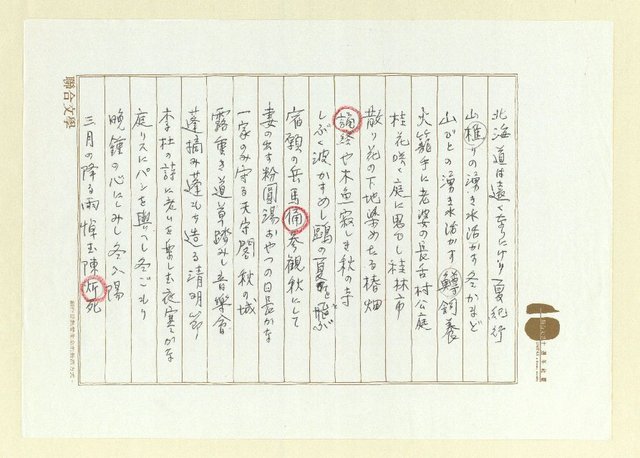 北海道は遠くなりにけり夏紀行
山樵りの湧き水活かす冬かまど
山びとの湧き水活かす鱒飼養
火籠手に老婆の長舌村公庭
桂花咲く庭に男もし桂林市
散り花の下地染めたる椿畑
誦経や木魚寂しき秋の寺
しぶく波かすめし鴎の夏を飛ぶ
宿願の岳馬備参観秋にして
妻の出す粉圓湯おやつの日長かな
一家のみ守る天守閣秋の城
露重き道草踏みし音樂會
蓬摘み蓬もち造る清明節
李杜の詩に老いを楽しむ夜寒かな
庭リスにパンを與へし冬ごもり
晩鐘の心にしみし冬入陽
三月の降る雨悼む陳炘死
聯合文學